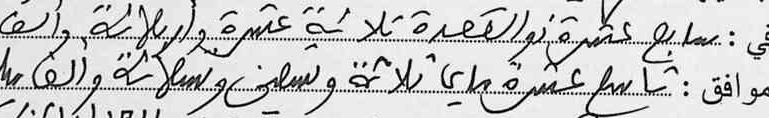 في : سابع عشرة ذو القعدة ثلاثة عشرة وأربعمائة وألف
موافق : تاسع عشرة ماي ثلاثة وتسعين وتسعمائة وألف